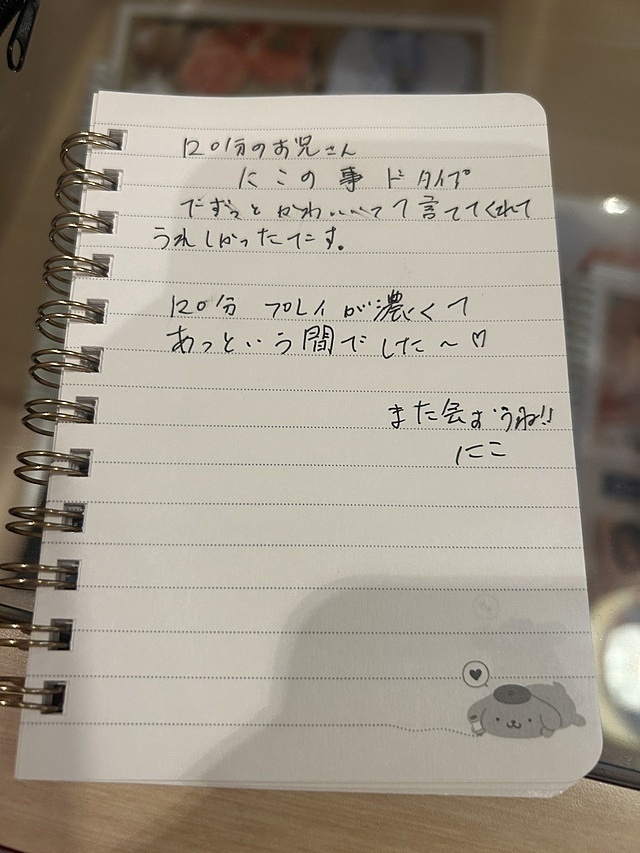 120分のお兄さん
にこの事 ドタイプ
でずっとかわいいって言ってくれて
うれしかったです。
120分 プレイが濃くて
あっという間でした〜♡
また会おうね!!
にこ